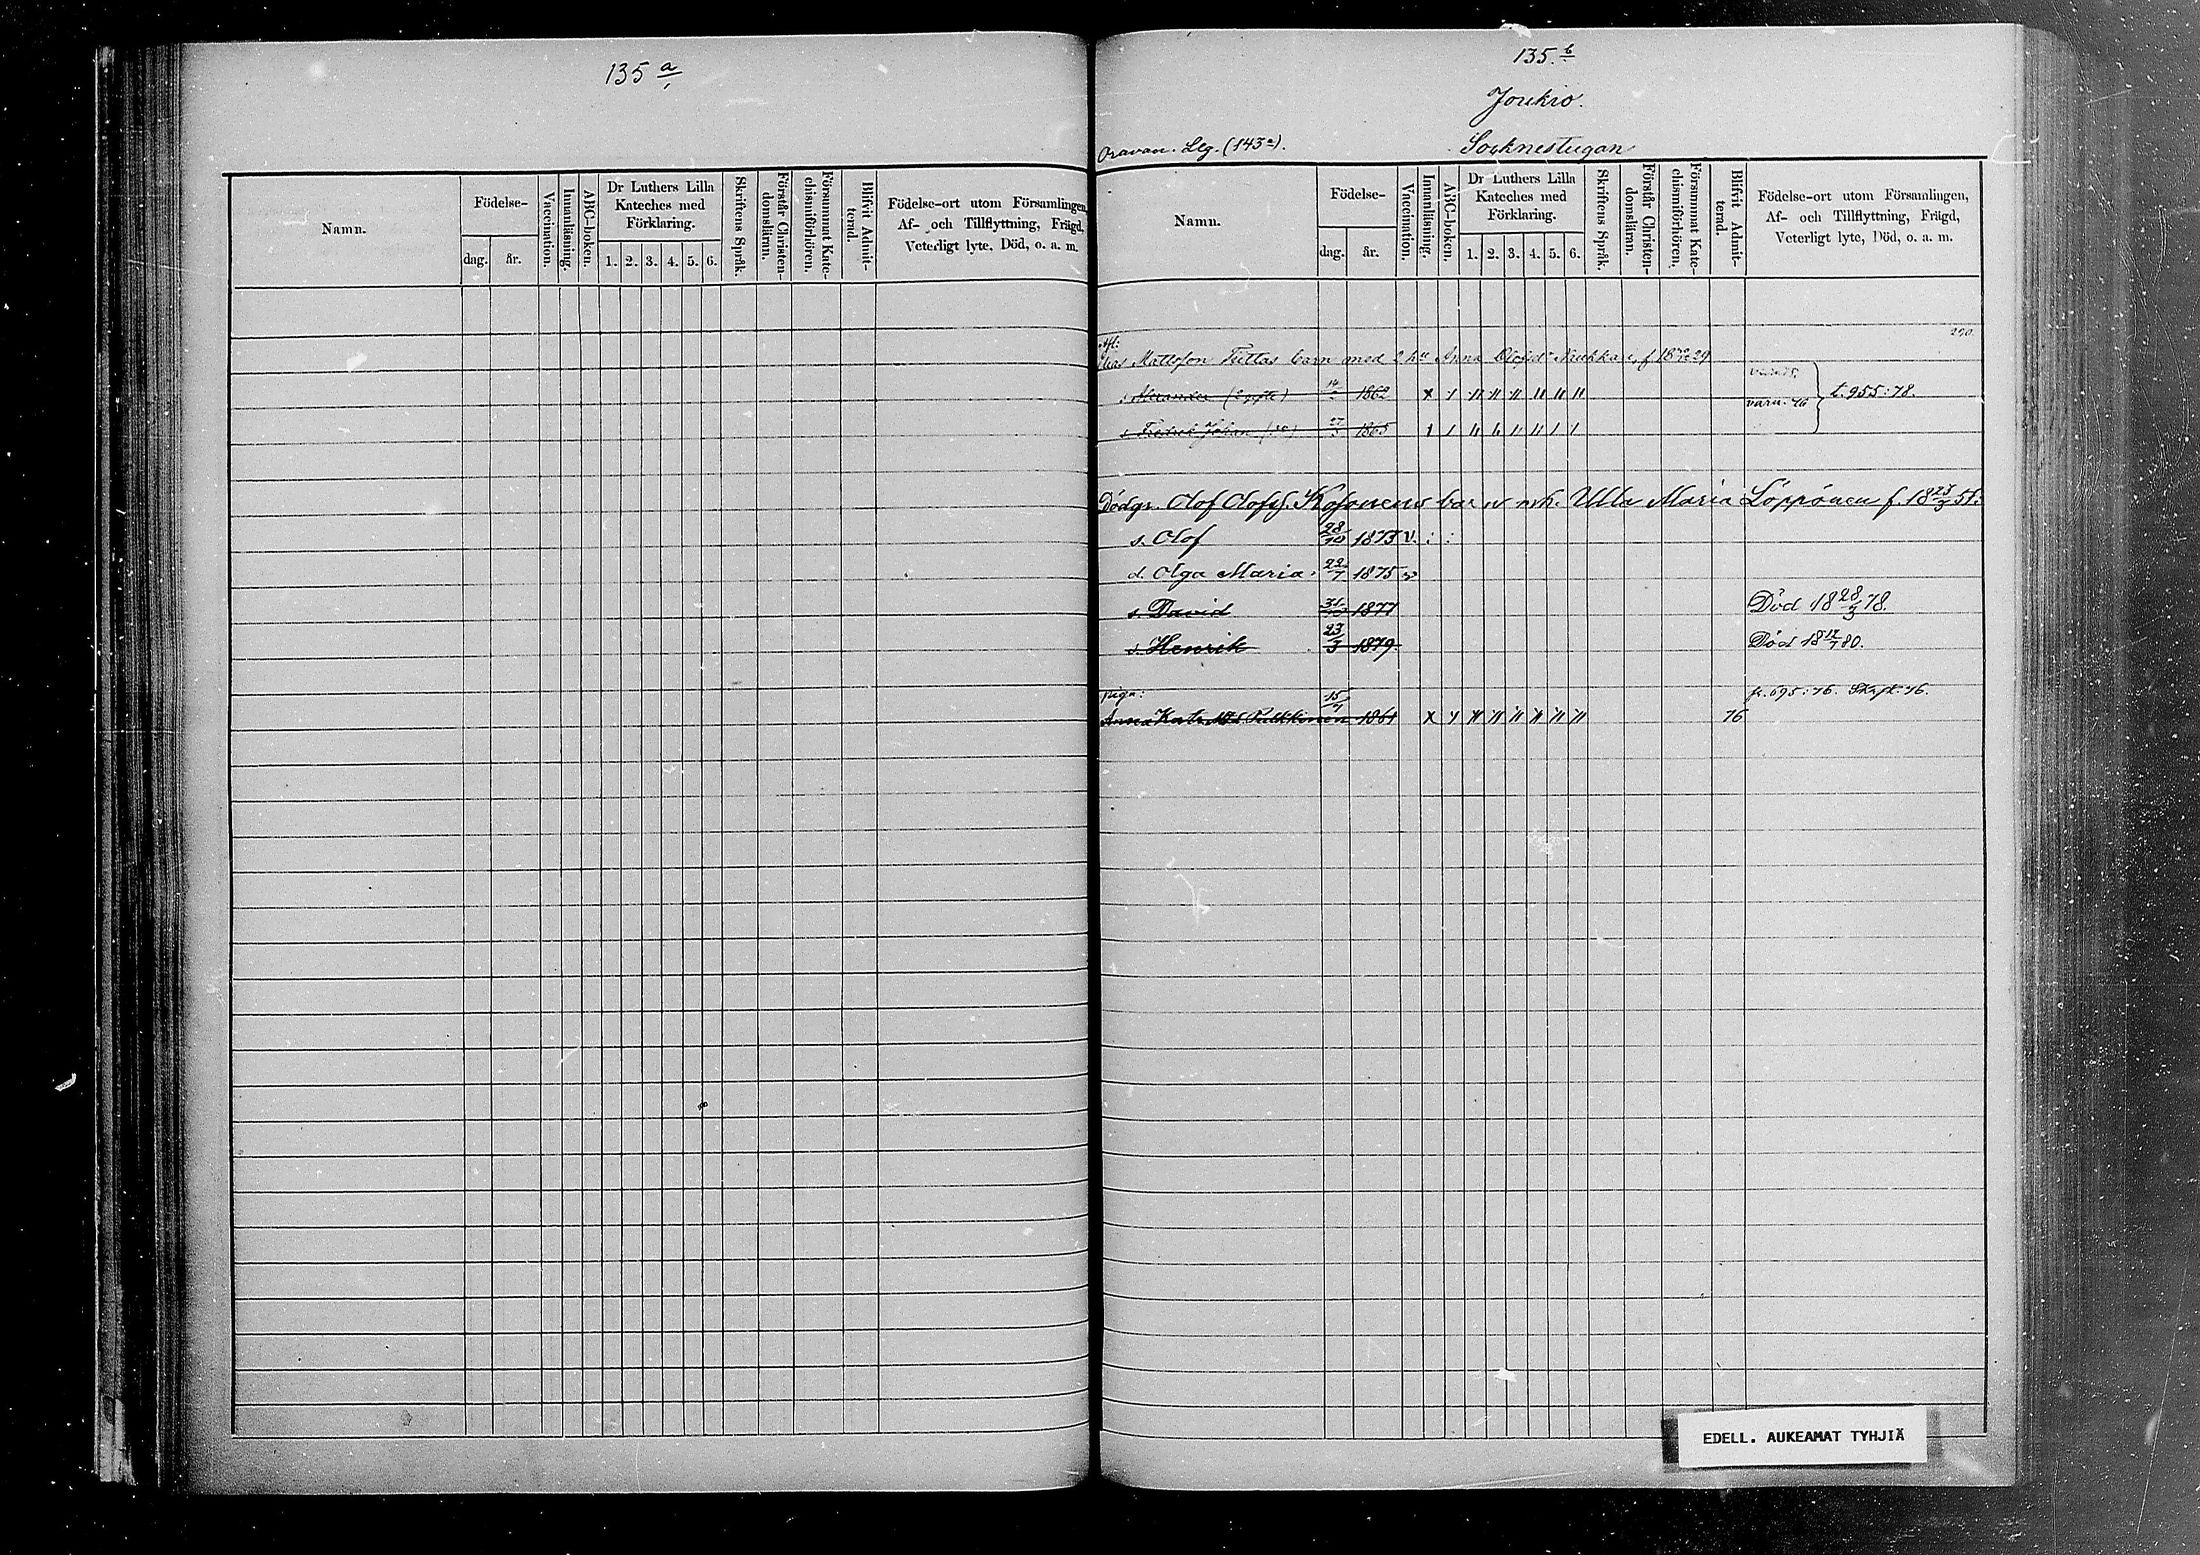 135 a
Namn.
Födelse-
dag.
år.
Vaccination.
Innanläsning.
ABC-boken.
Dr Luthers Lilla
Kateches med
Förklaring.
1. 2. 3. 4. 5. 6.
Skriftens Språk.
Förstår Christen-
domsläran.
Försummat Kate-
chismiförhören.
Blifvit Admit-
terad.
Födelse-ort utom Församlingen,
Af- och Tillflyttning, Frägd,
Veterligt lyte, Död, o. a. m.
135. b
Joukio.
Oravan. Llg. (143 a).
Socknestugan
Namn.
Födelse-
dag.
år.
Vaccination.
Innanläsning.
ABC-boken.
Dr Luthers Lilla
Kateches med
Förklaring.
1. 2. 3. 4. 5. 6.
Skriftens Språk.
Förstår Christen-
domsläran.
Försummat Kate-
chismiförhören.
Blifvit Admit-
terad.
Födelse-ort utom Församlingen,
Af- och Tillflyttning, Frägd,
Veterligt lyte, Död, o. a. m.
Mattsson barn med 2 hu Anna
1862 t. 955:78.
s. Fredrik Johan 1865
Dödgr. Olof Olofss. Kosonens barn m h. Ulla Maria Löppönen f. 18 51:
s. Olof 28/10 1873 v. : :
d. Olga Maria 22/7 1875 v
s. David 31/10 1877 Död 18 28/3 78.
s. Henrik 23/3 1879. Död 18 80.
piga: fr. 695:76.
Anna Pulkkinen 15/7 1861 76
EDELL. AUKEAMAT TYHJIÄ